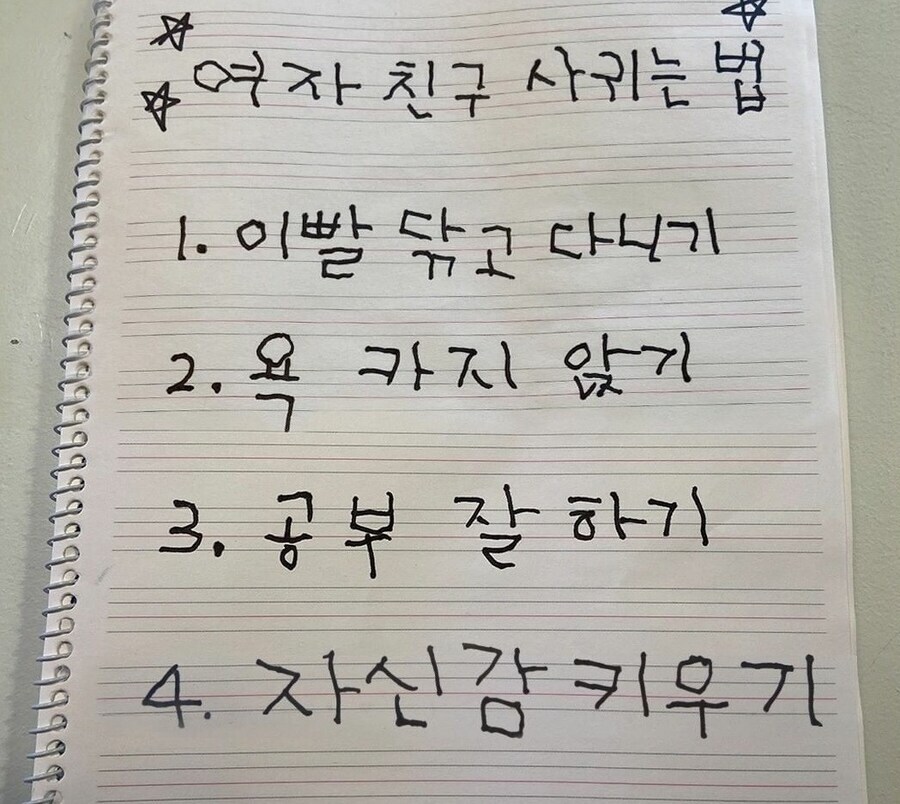 여자 친구 사귀는 법
1. 이빨 닦고 다니기
2. 욕 카지 앉기
3. 공부 잘 하기
4. 자신감 키우기